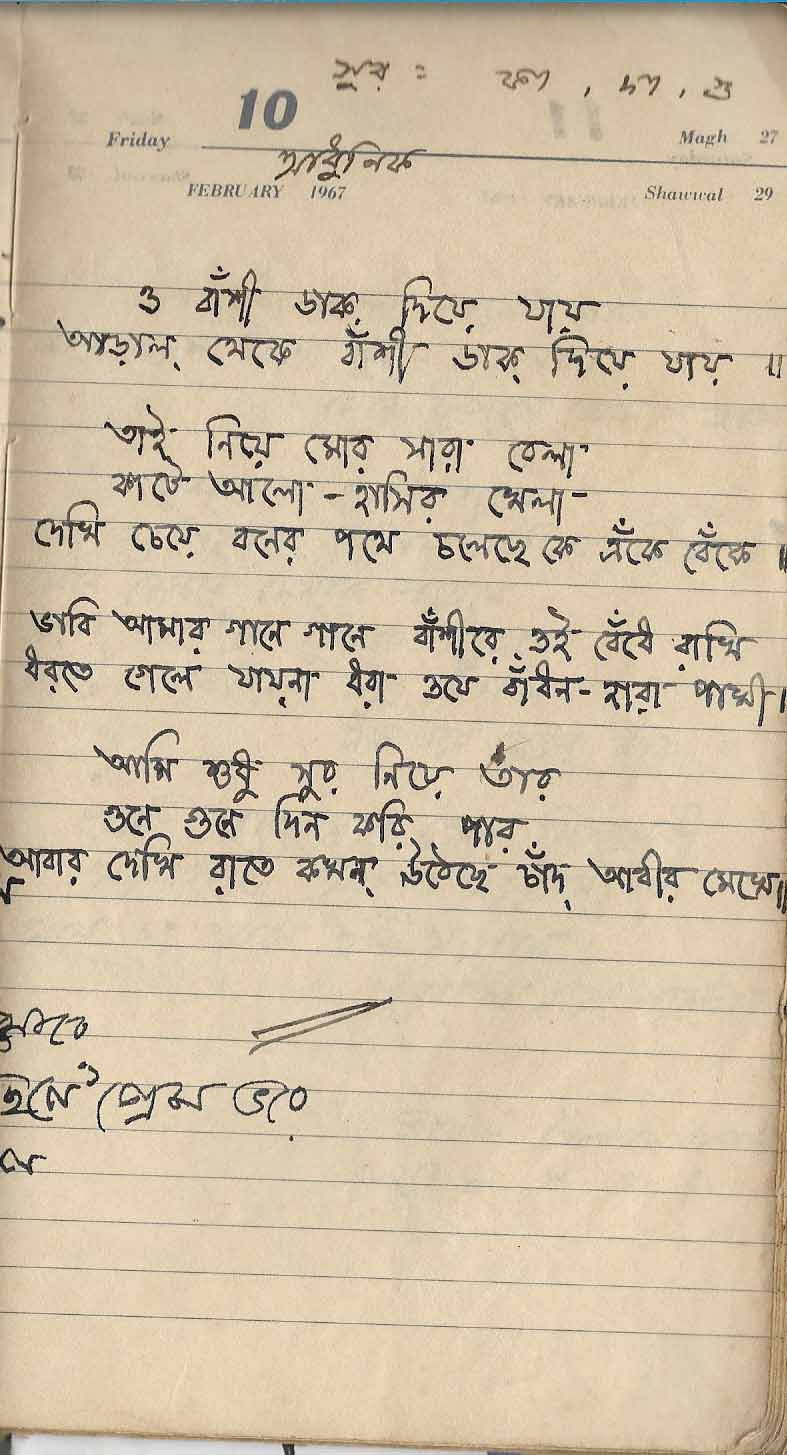 সুর :
10
Friday
Magh 27
আধুনিক
FEBRUARY 1967
Shawwal 29
ও বাঁশী ডাক্ দিয়ে যায়
আড়াল্ থেকে বাঁশী ডাক্ দিয়ে যায় ॥
তাই নিয়ে মোর সারা বেলা
কাটে আলো - হাসির খেলা -
দেখি চেয়ে বনের পথে চলেছে কে এঁকে বেঁকে ॥
ভাবি আমার গানে গানে বাঁশীরে ওই বেঁধে রাখি
ধরতে গেলে যায়না ধরা ওযে বাঁধন - হারা পাখী।
আমি শুধু সুর নিয়ে তার
গুনে গুনে দিন করি পার
আবার দেখি রাতে কখন্ উঠেছে চাঁদ্ আবীর মেখে॥
প্রেম ভরে